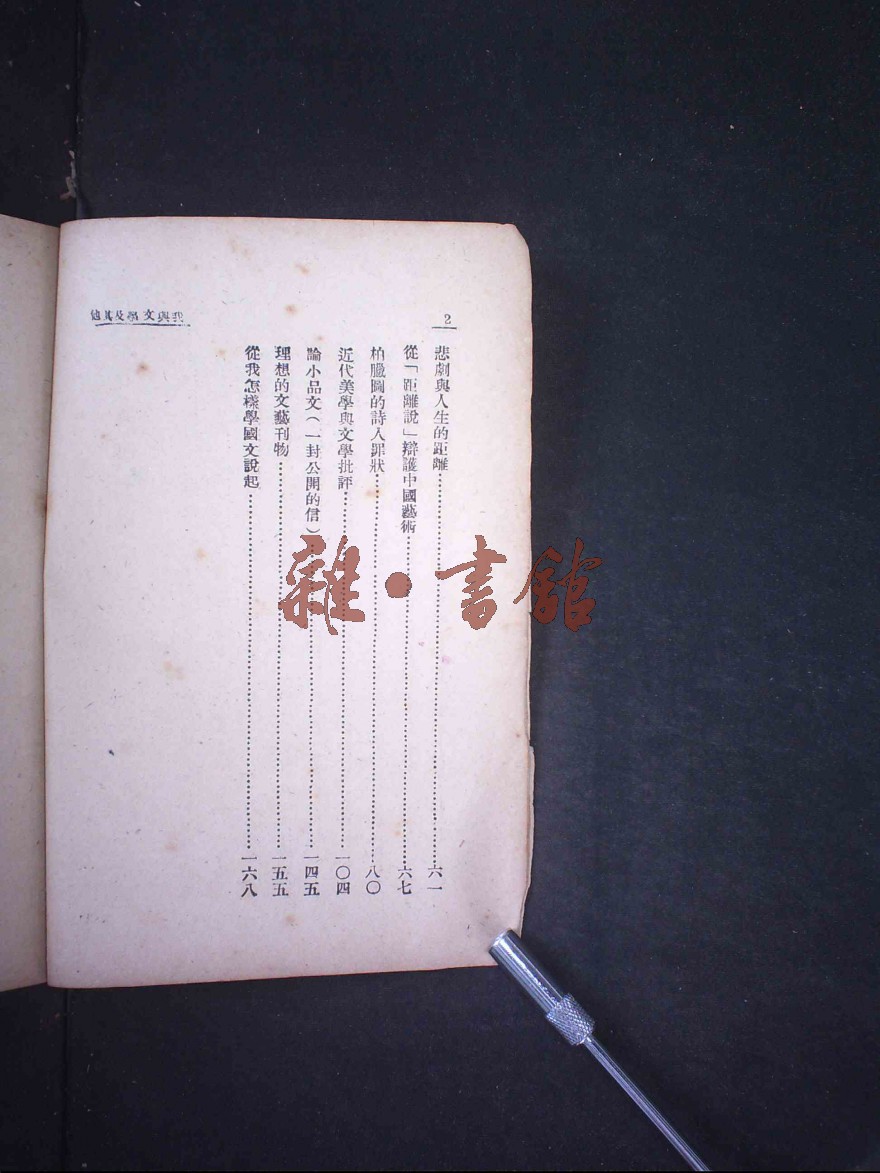 2
悲劇與人生的距離……六一
從「距離說」辯護中國藝術……六七
柏臘圖的詩人罪狀……八〇
近代美學與文學批評……一〇四
論小品文(一封公開的信)……一四五
理想的文藝刊物……一五五
從我怎樣學國文說起……一六八
我與文學及其他
雜·書館